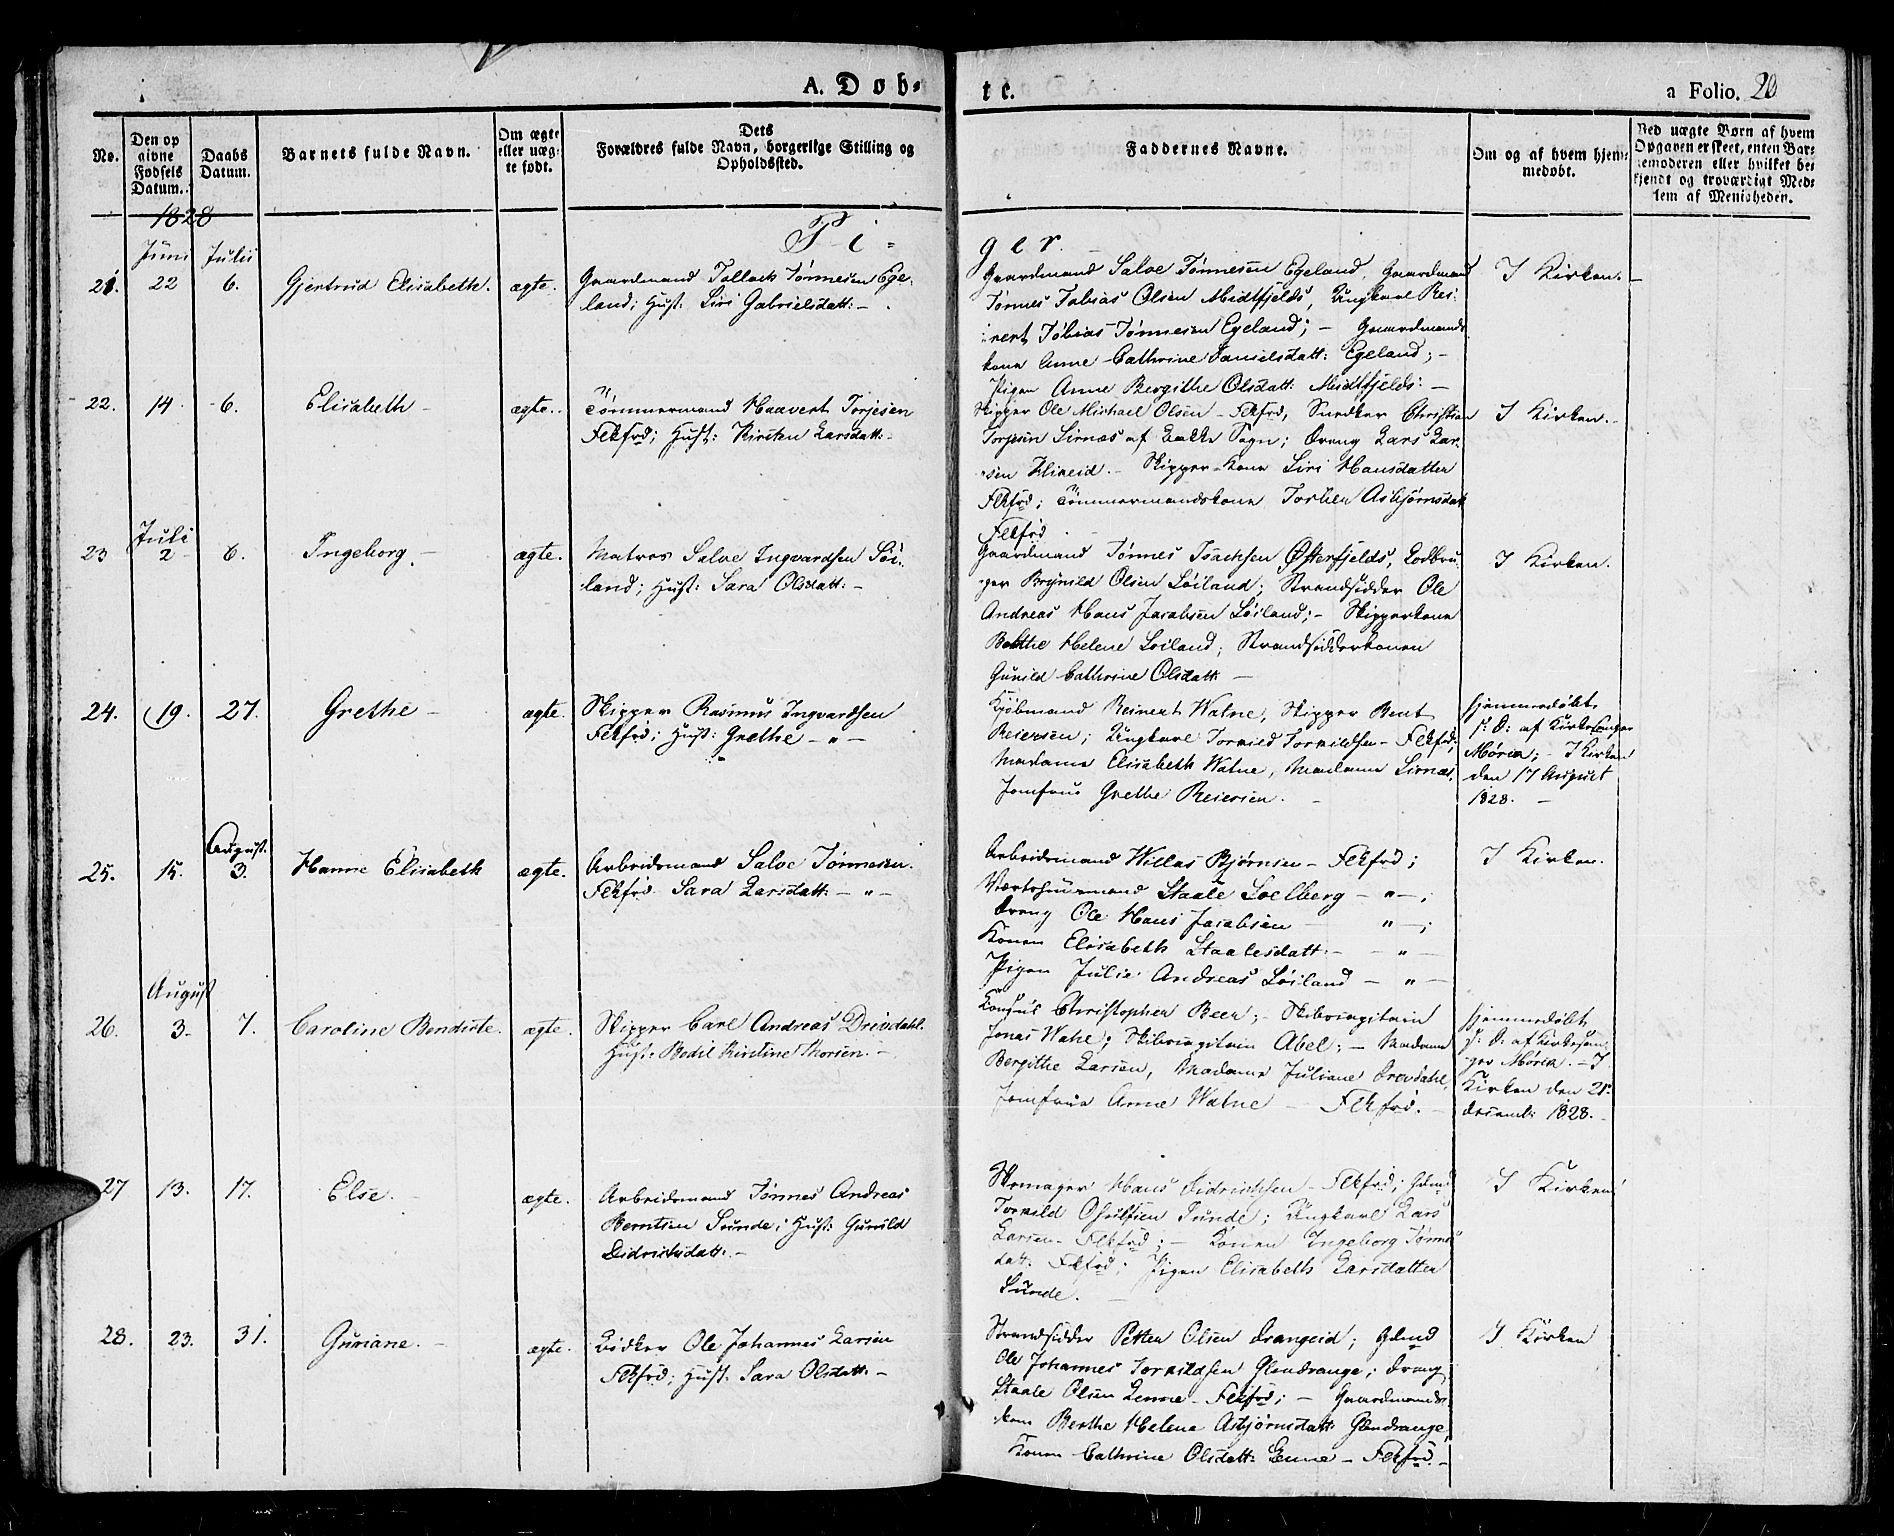 A. Døb-
te.
a Folio. 20
No.
Den op
givne
Fødsels
Datum.
Daabs
Datum.
Barnets fulde Navn.
Om ægte
eller uæg-
te født.
Dets
Forældres fulde Navn, borgerlige Stilling og
Opholdssted.
Faddernes Navne.
Om og af hvem hjem-
medøbt.
Ved uægte Børn af hvem
Opgaven er skeet, enten Bar-
nemoderen eller hvilket be-
kjendt og troværdigt Med-
lem af Menigheden.
1828
Pi-
ger.
Juni Julii
21. 22 6. Gjertrud Elisabeth. ægte.
Gaardmand Tollack Tønnesen Ege-
land; Hust: Siri Gabrielsdatt: -
Gaardmand Salve Tønnesen Egeland, Gaardmand
Tønnes Tobias Olsen Midtfjelds, Ungkarl Rei-
nert Tobias Tønnesen Egeland; - Gaardmands
kone Anne Cathrine Danielsdatt: Egeland; -
Pigen Anne Bergithe Olsdatt: Midtfjelds: -
I Kirken. -
22. 14 6. Elisabeth - ægte.
Tømmermand Haavert Torjesen
Flekfrd; Hust: Kirsten Larsdatt: -
Skipper Ole Michael Olsen - Flekfrd, Snedker Christian
Torjesen Sirnæs af Bakke Sogn; Dreng Lars Lar-
sen - Skipper-Kone Siri Hansdatter
Flekfrd; Tømmermandskone Asbjørnsdatt
Flekfrd
I Kirken. -
Juli
23 2 6. Ingeborg - ægte.
Matros Salve Ingvardsen Løi-
land; Hust: Sara Olsdatt: -
Gaardmand Tønnes Isachsen Østerfjelds, Lodbru-
ger Brynild Olsen Løiland; Strandsidder Ole
Andreas Hans Jacobsen Løiland; - Skipperkone
Helene Løiland; Strandsidderkonen
Gunild Cathrine Olsdatt -
I Kirken.
24. 19. 27. Grethe - ægte.
Skipper Rasmus Ingvardsen
Flekfrd; Hust: Grethe - " -
Kjøbmand Reinert Watne, Skipper Bent
Reiersen; Ungkarl Torkild Torkildsen - Flekfrd;
Madame Elisabeth Watne, Madame Sirnæs,
Jomfrue Grethe Reiersen. -
hjemmedøbt
s: D: af Kirkesanger
Møria; - I Kirken
den 17 August
1828. -
August.
25. 15. 3. Hanne Elisabeth ægte.
Arbeidsmand Salve Tønnesen.
Flekfrd Sara Larsdatt: - " -
Arbeidsmand Willas Bjørnsen - Flekfrd;
Værtshuusmand Staale Soelberg - " -;
Dreng Ole Hans Jacobsen - " -;
Konen Elisabeth Staalesdatt: - " -
Pigen Julie Andreas Løiland - " -
I Kirken.
August
26. 3. 7. Caroline Bendicte. ægte.
Skipper Carl Andreas Drivdahl.
Hust: Bodil Kirstine Thorsen. -
Konsul Christopher Beer; - Skibscapitain
Jonas Watne; Skibscapitain Abel; - Madame
Bergithe Larsen, Madame Juliane Drevdahl,
Jomfrue Anne Watne - Flekfrd. -
hjemmedøbt
s: D: af Kirkesan-
ger Møria. - I
Kirken den 21.
decemb: 1828. -
27 13. 17. Else. - ægte.
Arbeidsmand Tønnes Andreas
Berntsen Sunde; Hust: Gunild
Didriksdatt: -
Skomager Hans Didrichsen - Flekfrd; Glmd
Torkild Osuldsen Sunde; Ungkarl Lars
Larsen - Flekfrd; - Konen Ingeborg Tønnes
datt: Flekfrd; Pigen Elisabeth Larsdatter
Sunde. -
I Kirken
28. 23. 31. Guriane. - ægte.
Bødker Ole Johannes Larsen
Flekfrd; Hust: Sara Olsdatt: -
Strandsidder Petter Olsen Drangeid; Glmd
Ole Johannes Torkildsen Glendrange; Dreng
Staale Olsen - Flekfrd; - Gaardmands
kone Berthe Helene Asbjørnsdatt: Glendrange;
Konen Cathrine Olsdatt: - Flekfrd. -
I Kirken